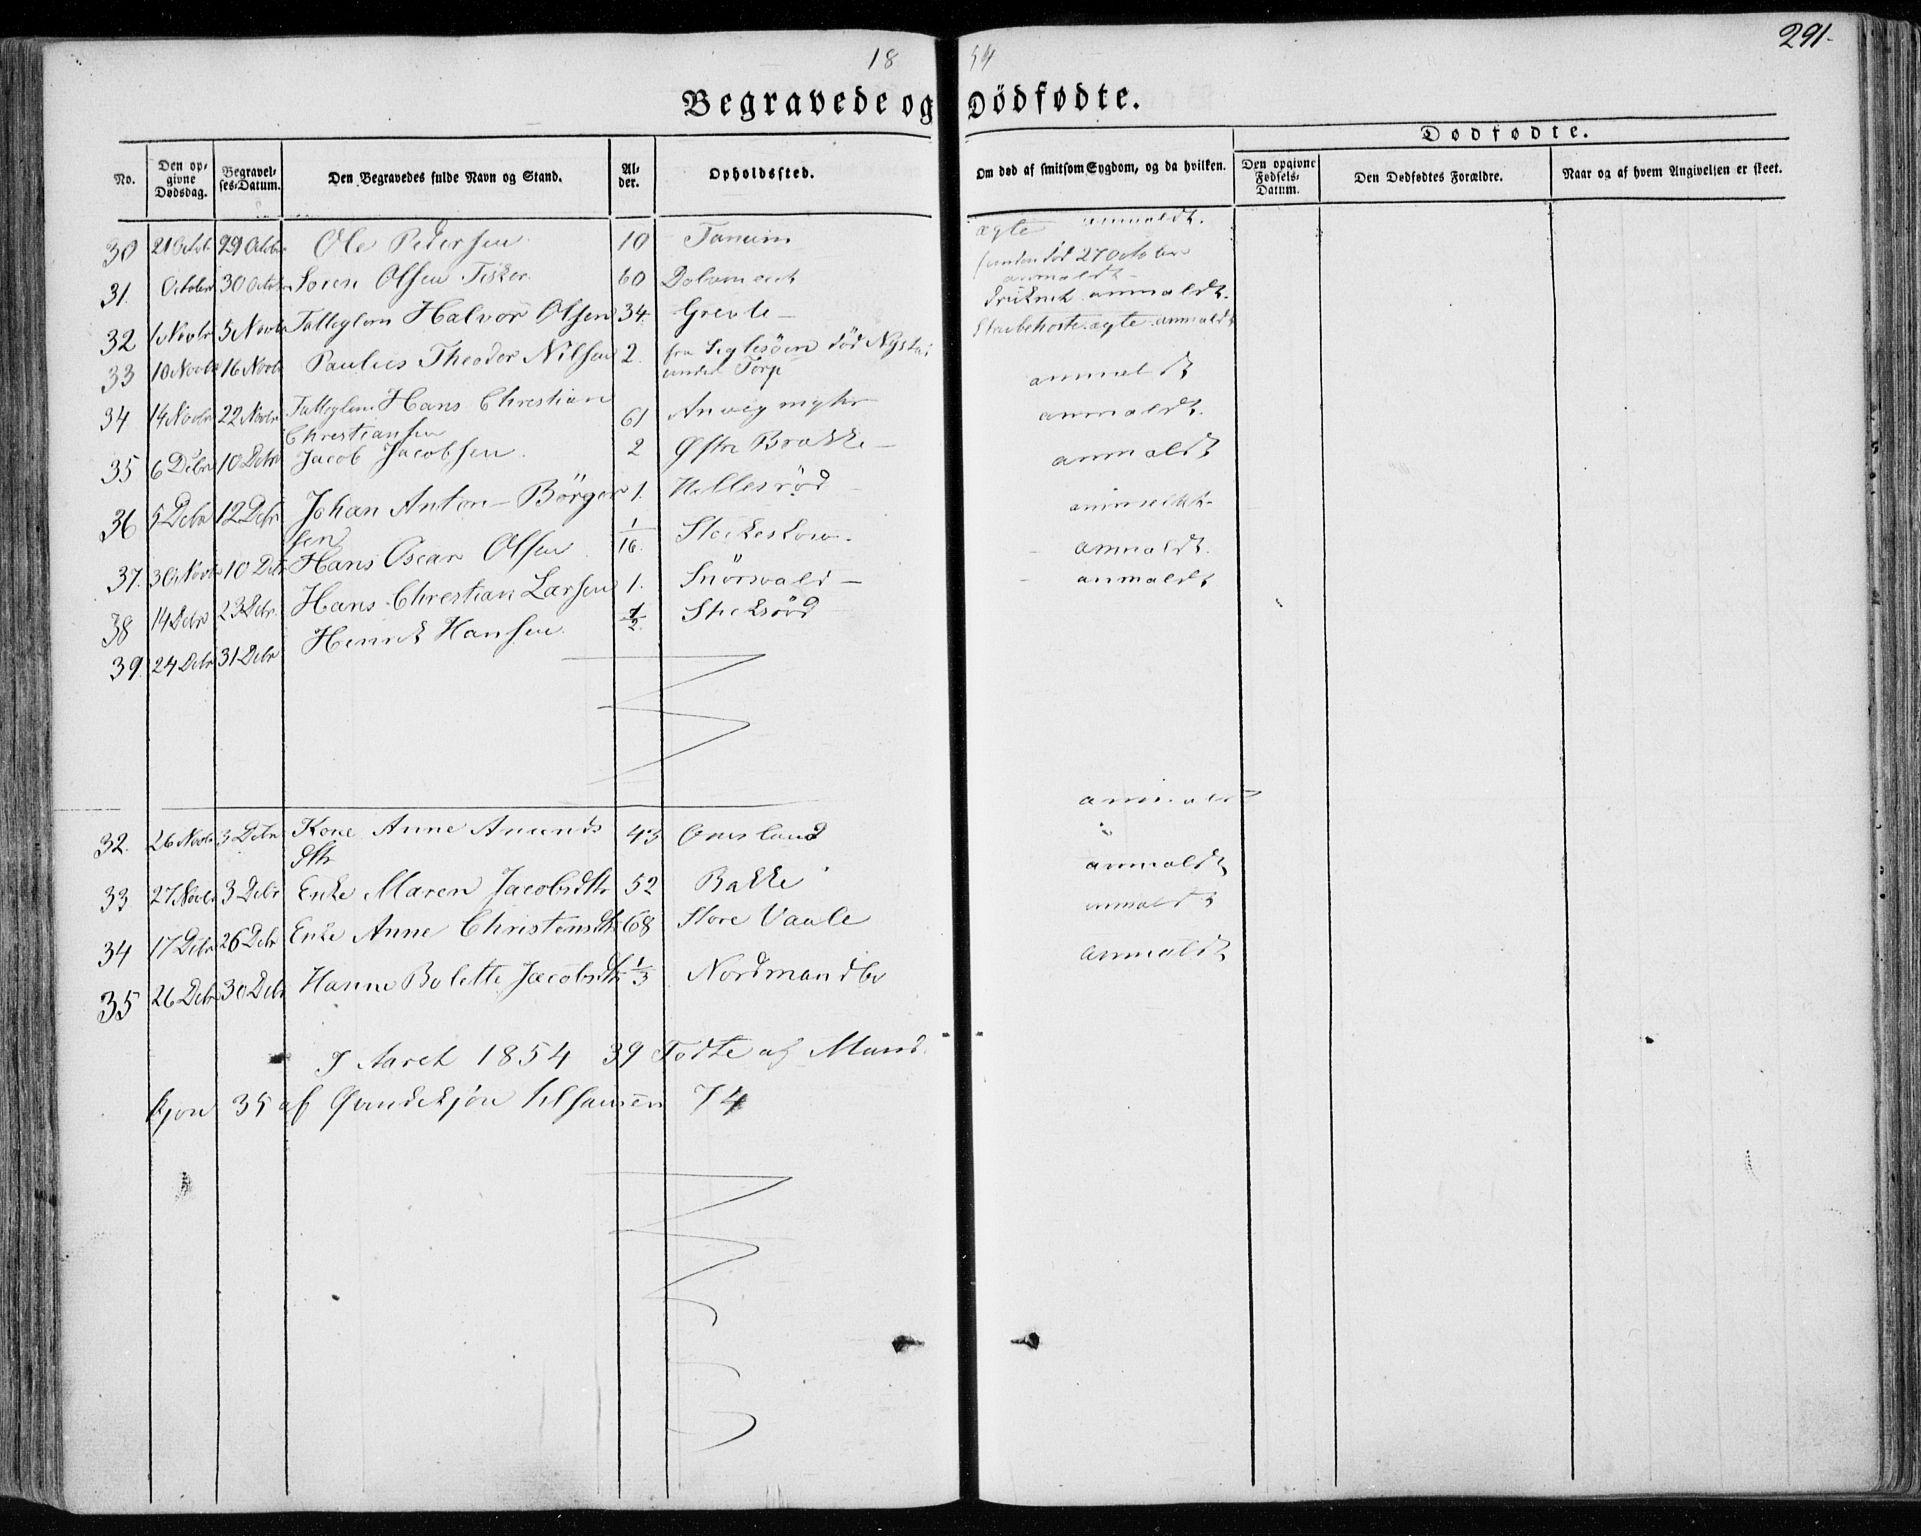 291.
18 54
Begravede og Dödfødte.
Dødfødte.
No. Den opgivne Dødsdag. Begravelses-Datum. Den Begravedes fulde Navn og Stand. Alder. Opholdssted. Om død af smitsom Sygdom, og da hvilken. Den opgivne Fødsels-Datum. Den Dødfødtes Forældre. Naar og af hvem Angivelsen er skeet.
30 21 Octob 29 Octobr Ole Pedersen 10 Tanum ægte anmeldt.
31. Octobr 30 Octbr Soren Olsen Fisker 60 død 27 October anmeldt
32 1 Novbr 5 Novbr Halvor Olsen 34. Grevle druknet anmeldt.
33 10 Novbr 16 Novb Paulus Theodor Nilsen 2. fra død
under Torp Strubehoste ægte anmeldt
34 14 Novbr 22 Novbr Hans Christian
Christiansen 61 anmeldt
35 6 Debr 10 Debr Jacob Jacobsen. 2 Østre Brække anmeldt.
36 5 Debr 12 Debr Johan Anton Börger
sen 1. Hellesrød anmeldt
37. 30 Novbr 10 Debr Hans Oscar Olsen 1/16. anmeldt
38 14 Debr 23 Debr. Hans Christian Larsen 1. anmeldt.
39. 24 Debr 31 Debr Henrik Hansen. 1/2. anmeldt
32. 26 Novbr 3 Debr Kone Anne Amunds
dtr 43 anmeldt
33 27 Novbr 3 Debr Enke Maren Jacobsdtr 52 Bakke anmeldt
34 17 Debr 26 Debr Enke Anne Christensdtr 68 Store Vaale anmeldt
35 26 Debr 30 Debr Hanne Bolette Jacobsdtr 1/3 Nordmandbo anmeldt
I Aaret 1854 39 Fødte af Mand.
kjøn 35 af Qvindekjøn tilsamen 74